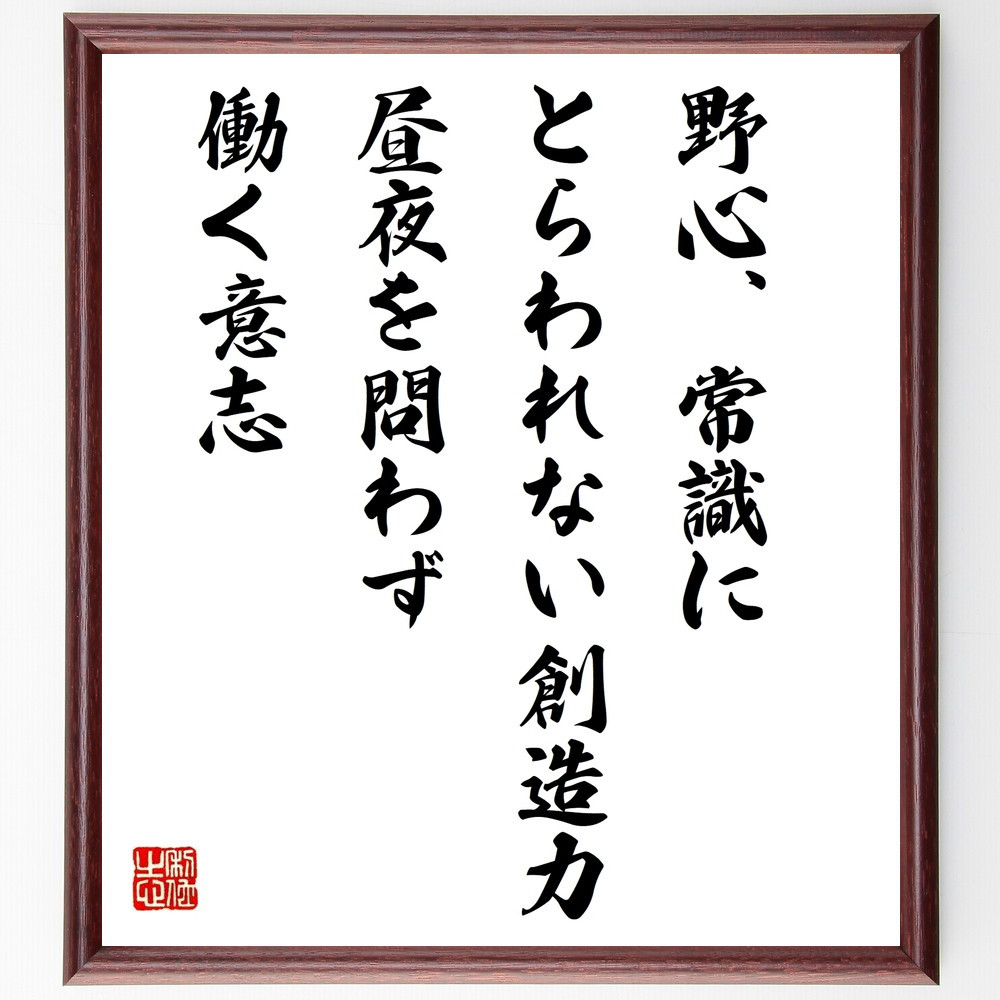 野心、常識に
とらわれない創造力
昼夜を問わず
働く意志